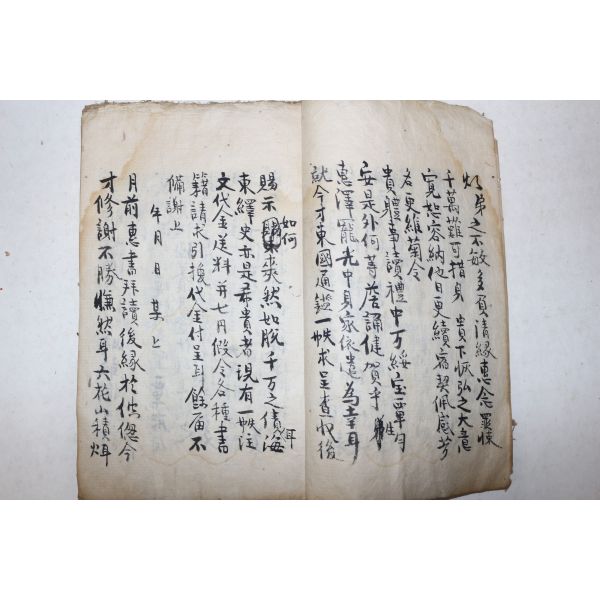 弟之不敏多負清緣惠念罪悚
千萬難可措身 貴下恢弘之大意
寬恕容納他日更續宿契佩感考
右更維菊令
貴軆事讀禮中万綏宝覃勻
安是外何等□誦健賀乎 弟
惠澤罷免中身家依遣為幸耳
就今才東國通鑑一帙求呈查收後
賜示如何 爽然如脫千万之債耳海
東繹史亦是希貴者現有一帙注
文代金送料并七円假令各種書
籍請求引換代金付呈到餘届不
備謝上
年月日 某上
月前惠書拜讀後緣於倥傯今
才修謝不勝慊然耳六花山積